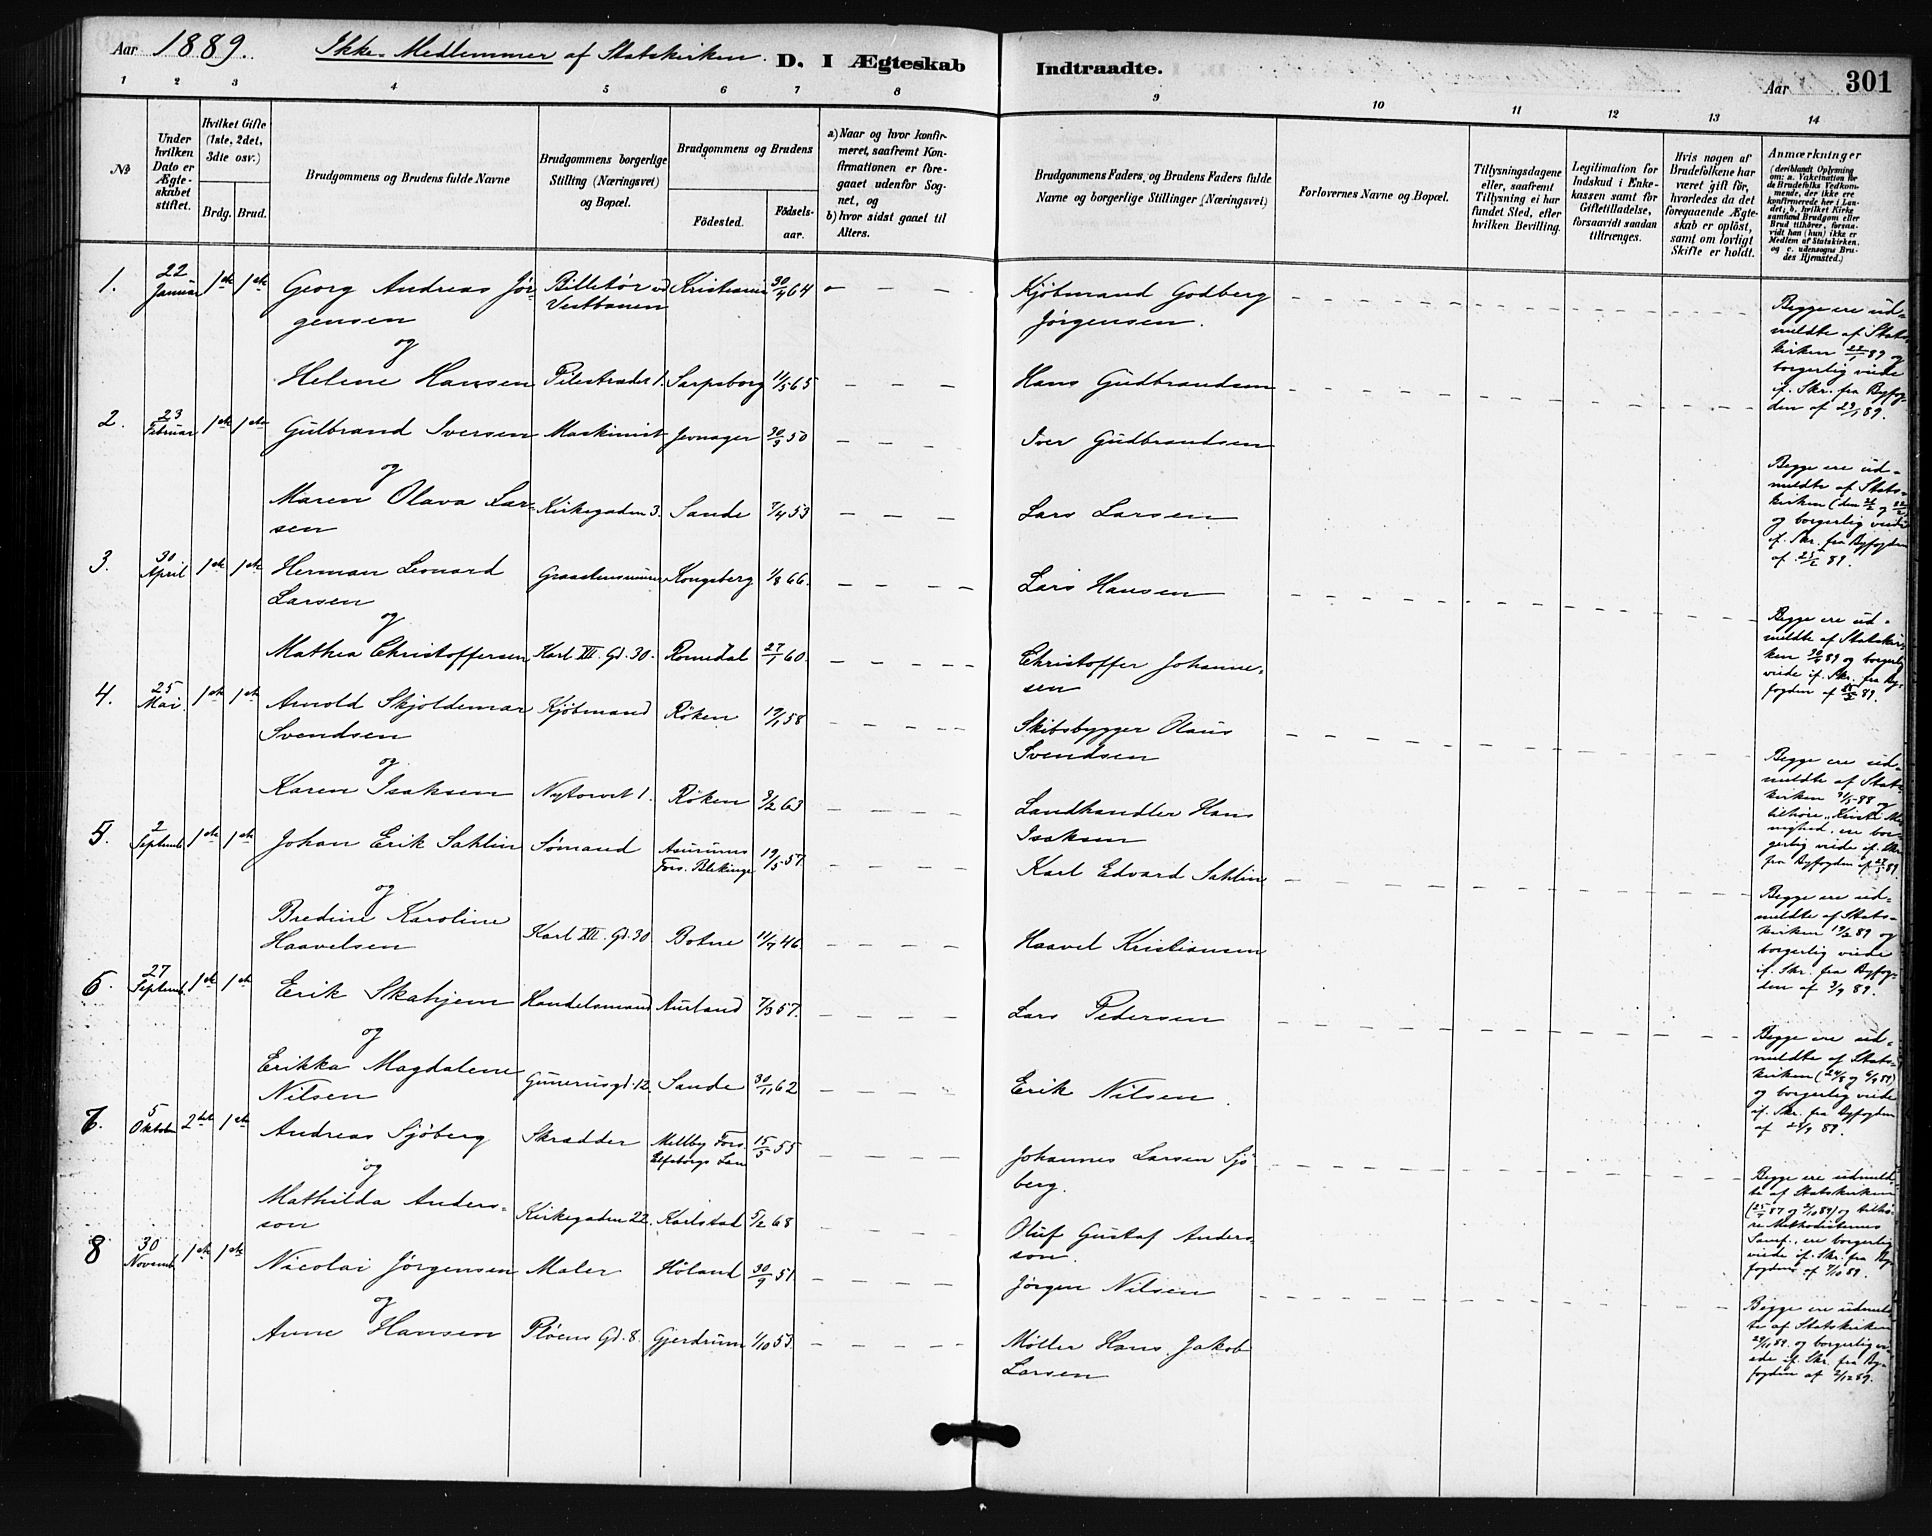 Aar 1889. Ikke-Medlemmer af Statskirken. D. I Ægteskab Indtraadte. Aar 301
1 2 3 4 5 6 7 8 9 10 11 12 13 14
No
Under hvilken Dato er Ægteskabet stiftet.
Hvilket Gifte (1ste, 2det, 3die osv.)
Brdg. Brud.
Brudgommens og Brudens fulde Navne
Brudgommens borgerlige Stilling (Næringsvei) og Bopæl.
Brudgommens og Brudens
Födested. Födselsaar.
a) Naar og hvor konfirmeret, saafremt Konfirmationen er foregaaet udenfor Sognet, og
b) hvor sidst gaaet til Alters.
Brudgommens Faders og Brudens Faders fulde Navne og borgerlige Stillinger (Næringsvei)
Forlovernes Navne og Bopæl.
Tillysningsdagene eller, saafremt Tillysning ei har fundet Sted, efter hvilken Bevilling.
Legitimation for Indskud i Enkekassen samt for Giftetilladelse, forsaavidt saadan tiltrænges.
Hvis nogen af Brudefolkene har været gift för, hvorledes da det foregaaende Ægteskab er oplöst, samt om lovligt Skifte er holdt.
Anmærkninger (deriblandt Oplysning om: a. Vakcination for de Brudefolks Vedkommende, der ikke ere konfirmerede her i Landet; b. hvilket Kirkesamfund Brudgom eller Brud tilhörer, forsaavidt han (hun) ikke er Medlem af Statskirken, og c. udensogns Brudes Hjemsted.)
1. 22 Januar 1ste 1ste Georg Andreas Jør- Billetør ved Kristiania 30/4 64 Kjøbmand Godberg
gensen Vestbanen Jørgensen.
og
Helene Hansen Pilestrædet 1. Sarpsborg 11/5 65 Hans Gudbrandsen
Begge ere ud-
meldte af Stats-
kirken 22/1 89 og
borgerlig viede
if. Skr. fra Byfog-
den af 23/1 89.
2. 23 Februar 1ste 1ste Gulbrand Iversen Maskinist Jevnager 30/3 50 Iver Gudbrandsen
og
Maren Olava Lar- Kirkegaden 3. Sande 7/4 53 Lars Larsen
sen
Begge ere ud-
meldte af Stats-
kirken (den
og borgerlig viede
if. Skr. fra Byfogden
af 25/2 89.
3. 30 April 1ste 1ste Herman Leonard Kongsberg 1/8 66. Lars Hansen
Larsen
og
Mathea Christoffersen Karl XII. Gd. 30. Romedal 27/1 60. Christoffer Johanne-
sen
Begge ere ud-
meldte af Statskir-
ken 30/4 89 og borgerlig
viede if. Skr. fra By-
fogden af 89.
4. 25 Mai. 1ste 1ste Arnold Skjoldemar Kjøbmand Røken 19/1 58 Skibsbygger Olaus
Svendsen Svendsen
og
Karen Isaksen Nytorvet 1. Røken 3/2 63 Landhandler Hans
Isaksen
Begge ere ud-
meldte af Stats-
kirken 31/5 88 og
tilhøre
ere bor-
gerlig viede if. Skr.
fra Byfogden af 27/5 89
5. 2 Septemb. 1ste 1ste Johan Erik Sahlin Sømand Asurums 19/5 57 Karl Edvard Sahlin
Fors. Blekinge
og
Bredine Karoline Karl XII. Gd. 30 Botne 11/7 46 Haavel Kristiansen
Haavelsen
Begge ere ud-
meldte af Stats-
kirken 19/2 89 og
borgerlig viede
if. Skr. fra Byfog-
den af 3/9 89.
6. 27 Septemb. 1ste 1ste Erik Skahjem Handelsmand Aurland 7/3 57. Lars Pedersen
og
Erikka Magdalene Gunerusgd. 12. Sande 30/11 62 Erik Nilsen.
Nilsen
Begge ere ud-
meldte af Stats-
kirken (24/8 og 6/9 89)
og borgerlig viede
if. Skr. fra Byfogden
af 28/9 89.
7. 5 Oktober 2det 1ste Andreas Sjöberg Skrædder Mellby Fors. 15/5 55 Johannes Larsen Sjö-
Elfsborgs Län berg.
og
Mathilda Anders- Kirkegaden 22. Karlstad 5/2 68 Oluf Gustaf Anders-
son son.
Begge ere udmeld-
te af Statskirken
og tilhø-
re Methodisternes
Samf., ere borgerlig
viede if. Skr. fra By-
fogden af 7/10 89.
8 30 Novemb. 1ste 1ste Nicolai Jørgensen Maler Høland 30/9 51 Jørgen Nilsen
og
Anne Hansen Pløens Gd. 8. Gjerdrum 1/10 53. Møller Hans Jakob
Larsen
Begge ere udmeld-
te af Statskirken
29/11 89. og borgerlig vi-
ede if. Skr. fra By-
fogden af 2/12 89.